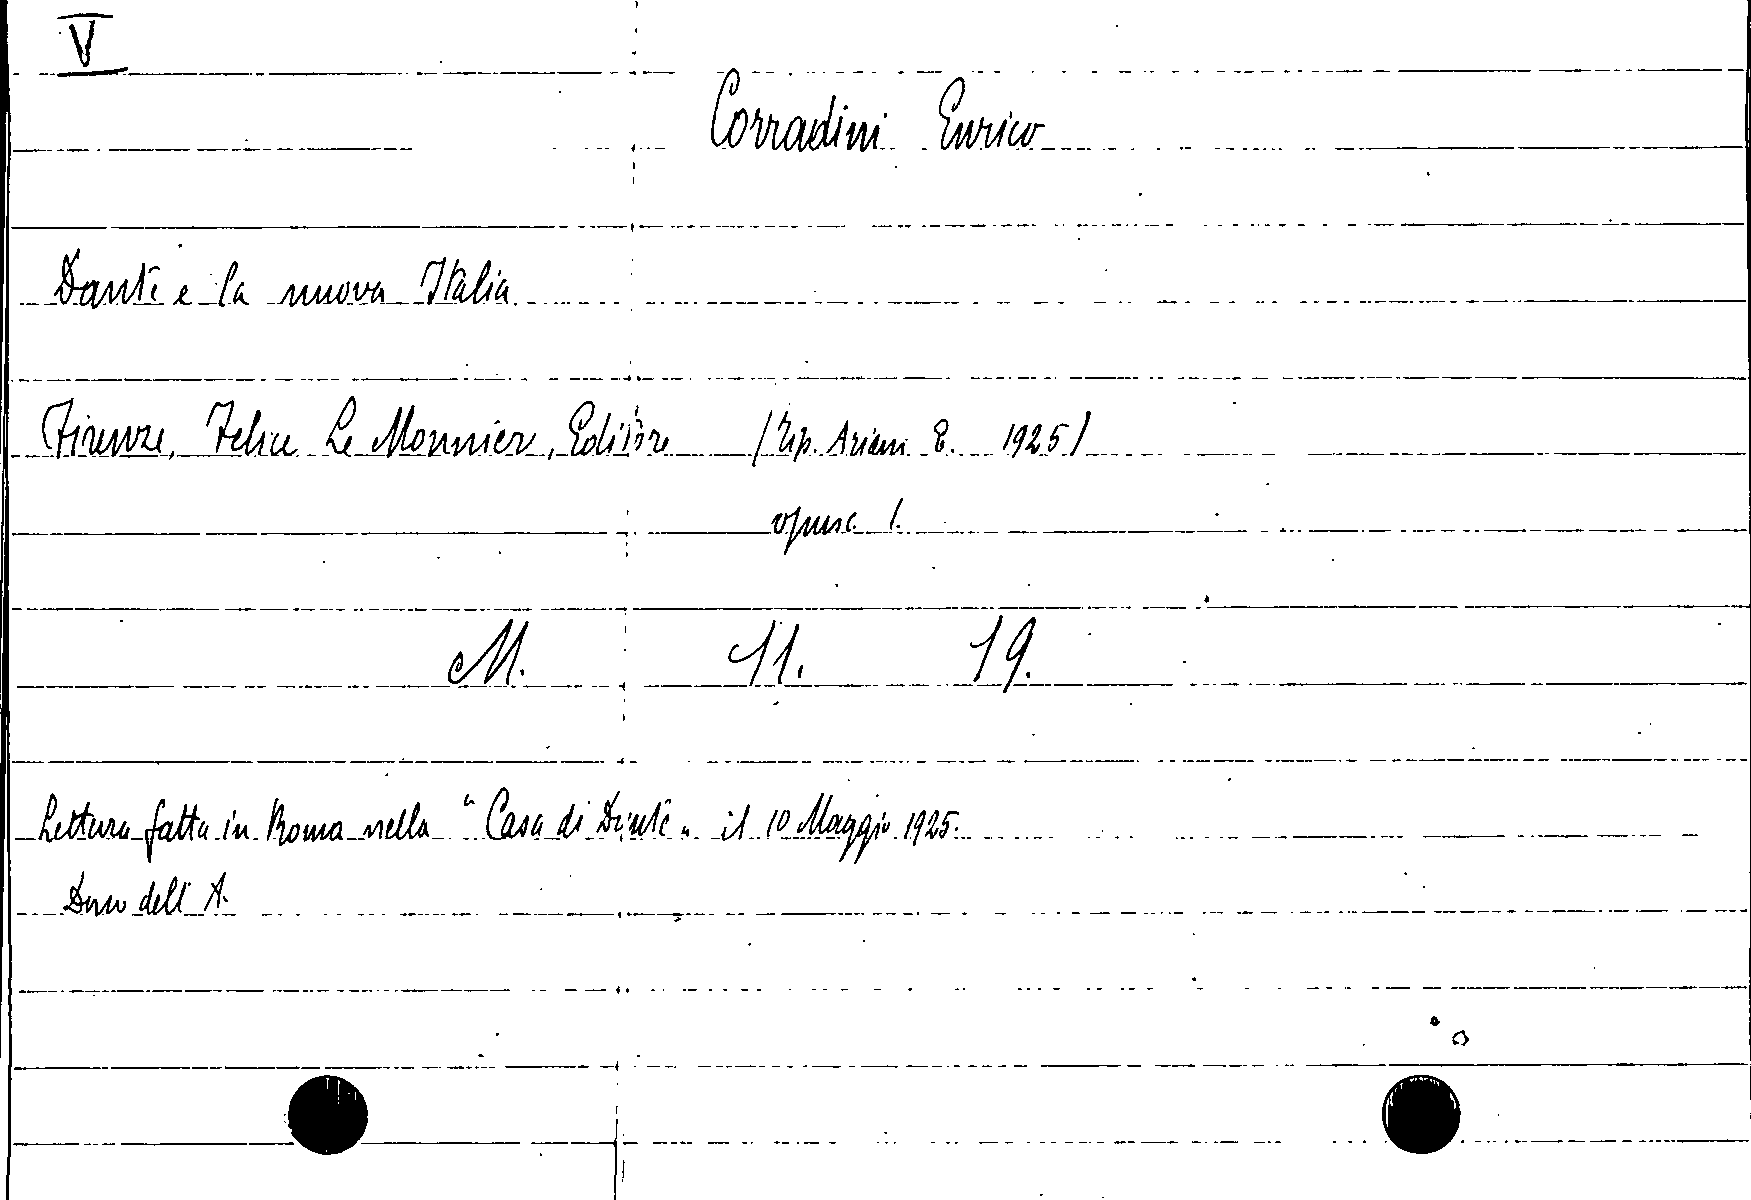 V
Corradini Enrico
Dante e la nuova Italia
Firenze, Felice Le Monnier, Editore (Tip. Ariani E. 1925)
opusc. 1.
M. 11. 19.
Lettura fatta in Roma nella "Casa di Dante" il 10 Maggio 1925.
Dono dell'A.